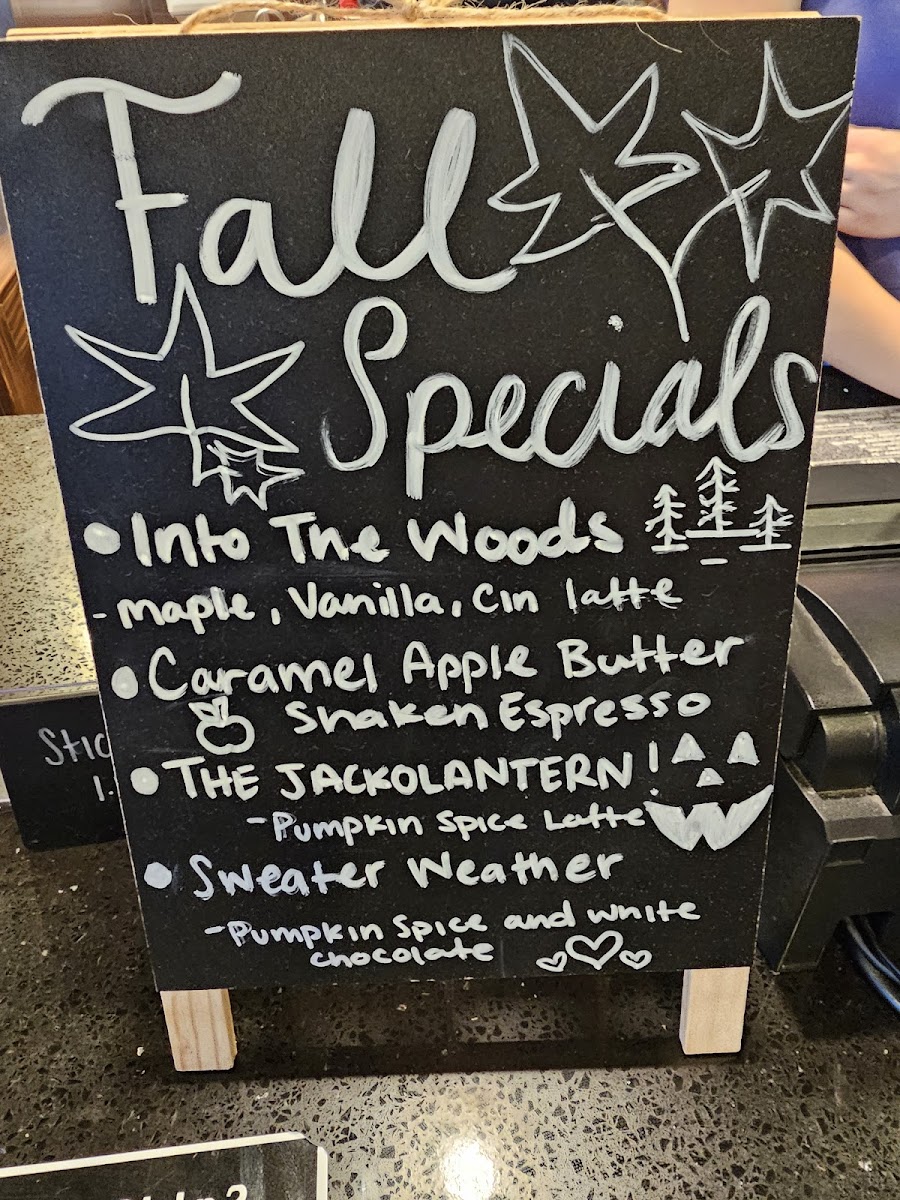 Fall
Specials
• Into The Woods
- maple, Vanilla, Cin latte
• Caramel Apple Butter
Shaken Espresso
• THE JACKOLANTERN!
- Pumpkin Spice Latte
• Sweater Weather
- Pumpkin Spice and white
chocolate